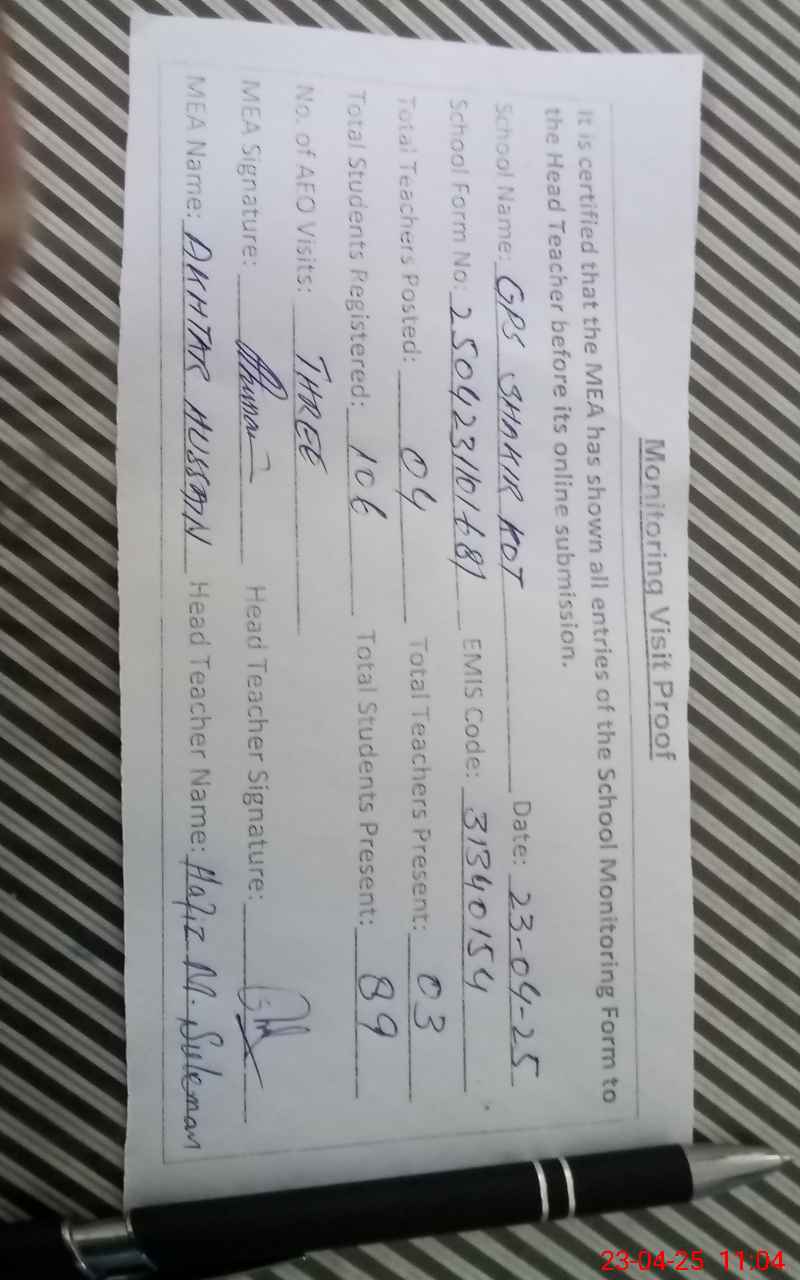 Monitoring Visit Proof
It is certified that the MEA has shown all entries of the School Monitoring Form to
the Head Teacher before its online submission.
School Name: GPS SHAKIR KOT Date: 23-04-25
School Form No: EMIS Code: 31340154
Total Teachers Posted: 04 Total Teachers Present: 03
Total Students Registered: 106 Total Students Present: 89
No. of AEO Visits: THREE
MEA Signature: Head Teacher Signature:
MEA Name: AKHTAR HUSSAIN Head Teacher Name: Hafiz M. Suleman
23-04-25 11:04